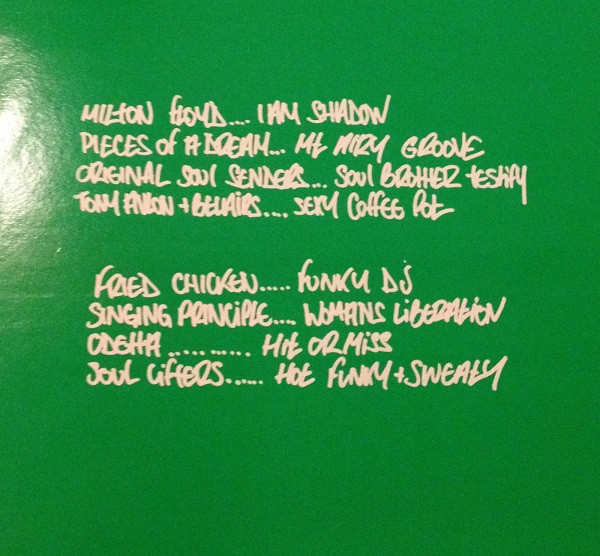 MILTON FLOYD.... I AM SHADOW
PIECES OF A DREAM... Mt AIRY GROOVE
ORIGINAL SOUL SENDERS... SOUL BROTHER testify
TONY ALVON + BELAIRS.... SEXY COFFEE POt
FRIED CHICKEN..... FUNKY DJ
SINGING PRINCIPLE.... WOMANS LIBERATION
ODETTA .......... HIt OR MISS
SOUL LIFTERS...... HOt FUNKY + SWEATY